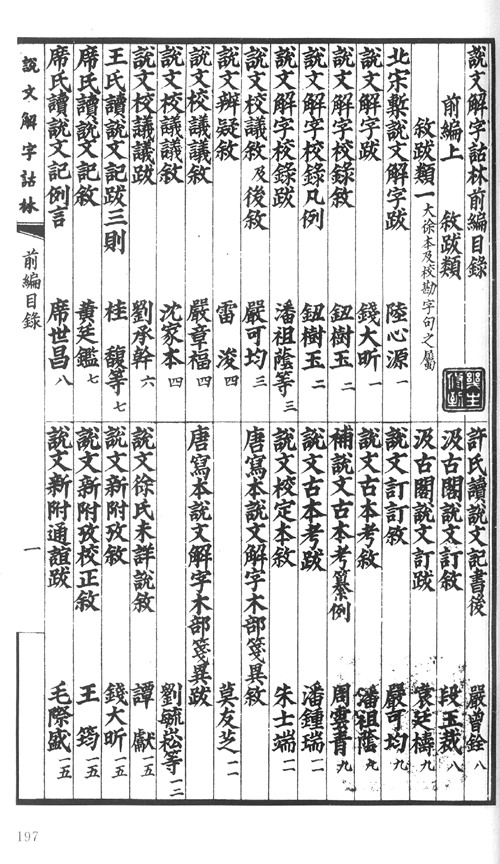 說文解字詁林前編目錄
前編上 敘跋類
敘跋類一 大徐本及校勘字句之屬
北宋槧說文解字跋 陸心源 一
說文解字跋 錢大昕 一
說文解字校錄敘 鈕樹玉 二
說文解字校錄凡例 鈕樹玉 二
說文解字校錄跋 潘祖蔭等 三
說文校議敘及後敘 嚴可均 三
說文辨疑敘 雷浚 四
說文校議議敘 嚴章福 四
說文校議議敘 沈家本 四
說文校議議跋 劉承幹 六
王氏讀說文記跋三則 桂馥等 七
席氏讀說文記敘 黃廷鑑 七
席氏讀說文記例言 席世昌 八
許氏讀說文記書後 嚴曾銓 八
汲古閣說文訂敘 段玉裁 八
汲古閣說文訂跋 袁廷檮 九
說文訂訂敘 嚴可均 九
說文古本考敘 潘祖蔭 九
補說文古本考纂例 周雲青 九
說文古本考跋 潘鍾瑞 一一
說文校定本敘 朱士端 一一
唐寫本說文解字木部箋異敘
莫友芝 一一
唐寫本說文解字木部箋異跋
劉毓崧等 一二
說文徐氏未詳說敘 譚獻 一五
說文新附攷敘 錢大昕 一五
說文新附攷校正敘 王筠 一五
說文新附通誼跋 毛際盛 一五
說文解字詁林
前編目錄
一
197